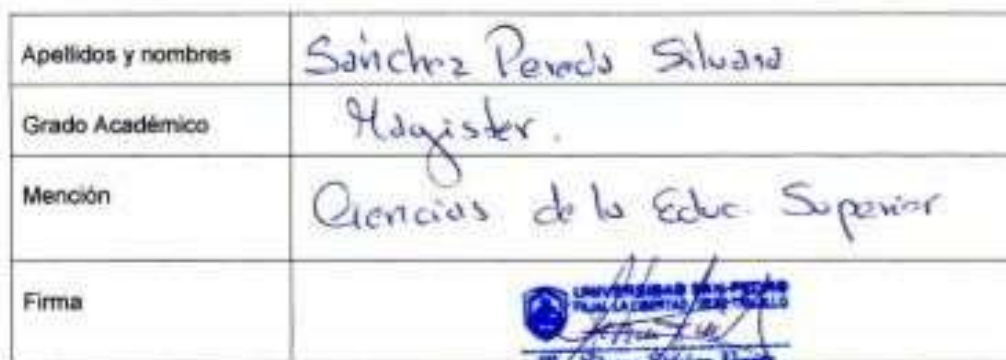 Apellidos y nombres Sánchez Pereda Silvana
Grado Académico Magister.
Mención Ciencias de la Educ. Superior
Firma
UNIVERSIDAD SAN PEDRO
FILIAL LA LIBERTAD / SEDE TRUJILLO